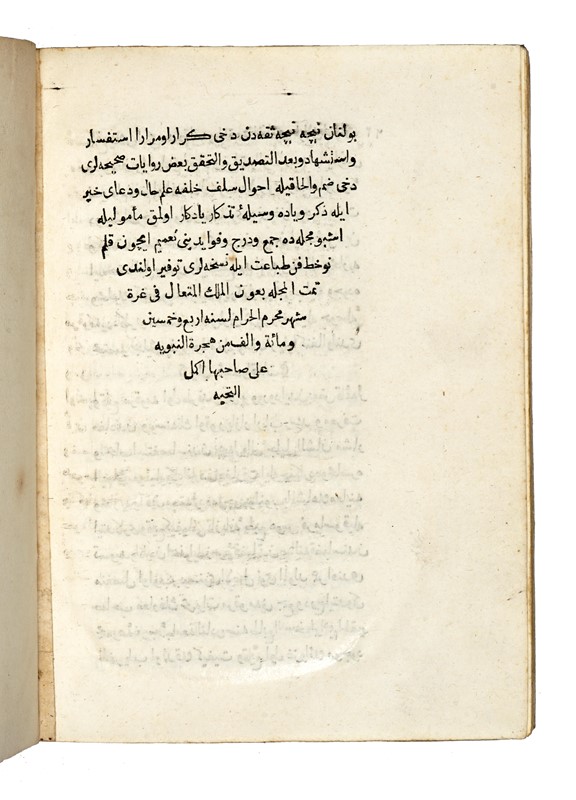 بولنان نیچه نیچه ثقه‌دن دخی کرارا ومرارا استفسار
واستشهاد وبعد التصدیق والتحقق بعض روایات صحیحه‌لری
دخی ضم والحاقیله احوال سلف خلفه علم حال ودعای خیر
ایله ذکر ویاده وسیلهٔ تذکار یادکار اولمق مأمولیله
اشبو مجله‌ده جمع ودرج وفوایدینی تعمیم ایچون قلم
نوخط فن طباعت ایله نسخه‌لری توفیر اولندی
تمت المجله بعون الملك المتعال فی غرة
شهر محرم الحرام لسنه اربع وخمسین
ومائة والف من هجرة النبویه
علی صاحبها اکمل
التحیه